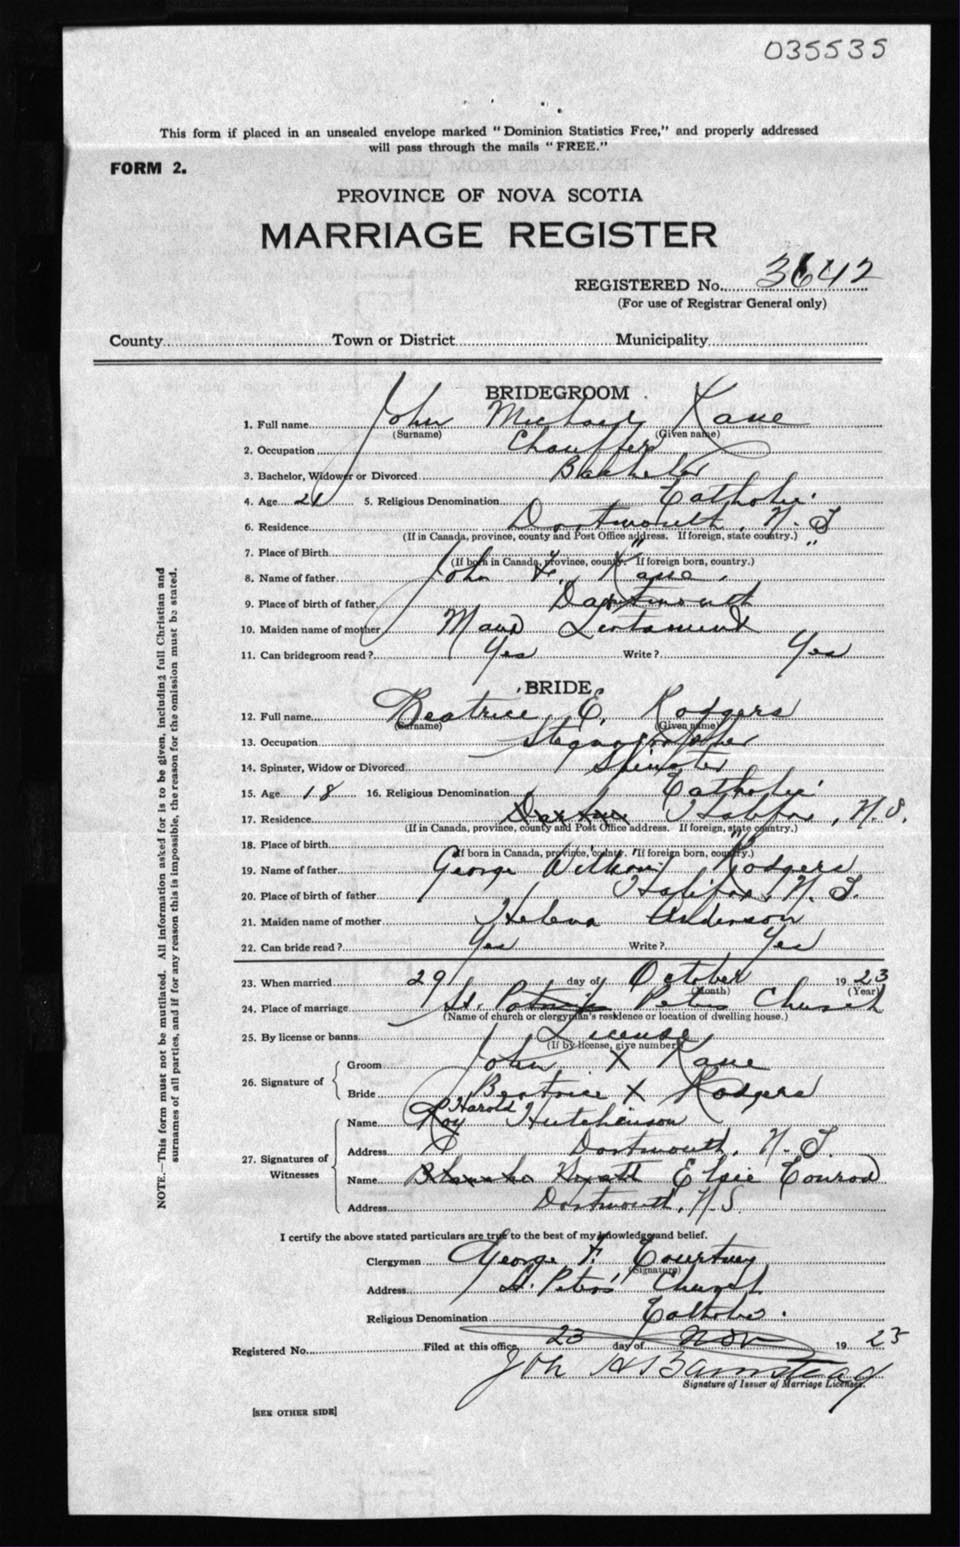 035535
This form if placed in an unsealed envelope marked "Dominion Statistics Free," and properly addressed
will pass through the mails "FREE."
FORM 2.
PROVINCE OF NOVA SCOTIA
MARRIAGE REGISTER
REGISTERED No. 3642
(For use of Registrar General only)
County Town or District Municipality
BRIDEGROOM
1. Full name John Michael Kane
(Surname) (Given name)
2. Occupation Chauffer
3. Bachelor, Widower or Divorced Bachelor
4. Age 21 5. Religious Denomination Catholic
6. Residence Dartmouth, N.S
(If in Canada, province, county and Post Office address. If foreign, state country.)
7. Place of Birth " "
(If born in Canada, province, county. If foreign born, country.)
8. Name of father John F. Kane
9. Place of birth of father Dartmouth
10. Maiden name of mother Maud
11. Can bridegroom read? Yes Write? Yes
BRIDE
12. Full name Beatrice E. Rodgers
(Surname) (Given name)
13. Occupation Stenographer
14. Spinster, Widow or Divorced Spinster
15. Age 18 16. Religious Denomination Catholic
17. Residence Halifax, N.S.
(If in Canada, province, county and Post Office address. If foreign, state country.)
18. Place of birth " "
(If born in Canada, province, county. If foreign born, country.)
19. Name of father George William Rodgers
20. Place of birth of father Halifax, N.S.
21. Maiden name of mother Helena Anderson
22. Can bride read? Yes Write? Yes
23. When married 29 day of October 1923
(Month) (Year)
24. Place of marriage St. Peters Church
(Name of church or clergyman's residence or location of dwelling house.)
25. By license or banns License
(If by license, give number)
26. Signature of Groom John X Kane
Bride Beatrice X Rodgers
27. Signatures of Witnesses Name Roy Harold Hutchinson
Address Dartmouth, N.S.
Name Elsie Conrod
Address Dartmouth, N.S.
I certify the above stated particulars are true to the best of my knowledge and belief.
Clergyman George F. Courtney
(Signature)
Address St. Peters' Church
Religious Denomination Catholic.
Registered No. Filed at this office 23 day of Nov 1923
Signature of Issuer of Marriage Licenses.
[SEE OTHER SIDE]
NOTE.—This form must not be mutilated. All information asked for is to be given, including full Christian and
surnames of all parties, and if for any reason this is impossible, the reason for the omission must be stated.